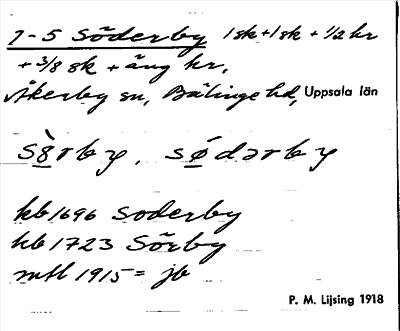 1-5 Söderby 1 sk + 1 sk + 1/2 kr
+ 3/8 sk + äng kr,
Åkerby sn, Bälinge hd, Uppsala län
sȣ̀rby, sǿdərby
kb 1696 Soderby
kb 1723 Sörby
mtl 1915 = jb
P. M. Lijsing 1918